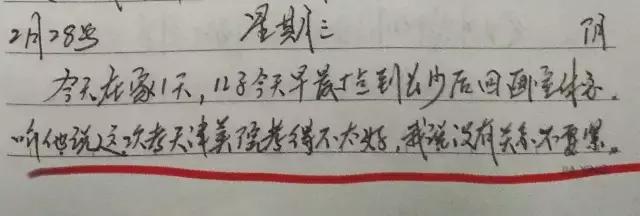 2月28号 星期三 阴
今天在家1天，儿子今天早晨十点到长沙后回画室休息。
听他说这次考天津美院考得不太好，我说没有关系不要紧。